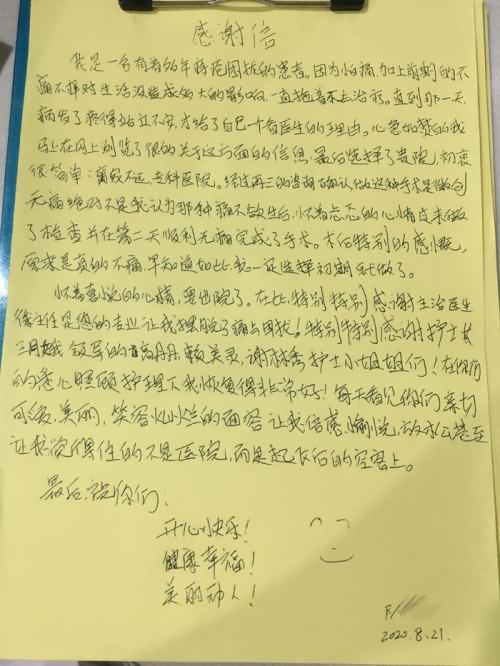 感谢信
我是一名有着多年痔疮困扰的患者。因为怕痛,加上前期的不
痛不痒对生活没造成多大的影响,一直拖着未去治疗。直到那一天
病发了疼得站立不安,才给了自己一个看医生的理由。心急如焚的我
马上在网上浏览了很多关于这方面的信息,最后选择了贵院,初衷
很简单:离家不远,专科医院。经过再三的咨询确认做这种手术是做到
无痛绝对不是我认为那种痛不欲生后,怀着忐忑的心情过来做
了检查并在第二天顺利无痛完成了手术。术后特别的感慨,
原来是真的不痛早知道如此我一定选择初期就做了。
怀着喜悦的心情,要出院了。在此特别特别感谢主治医生
徐主任是您的专业让我摆脱了痛与困扰!特别特别感谢护士长
领导的 护士小姐姐们!在你们
的悉心照顾护理下我恢复得非常好!每天看见你们亲切
可爱,美丽,笑容灿烂的面容让我倍感愉悦,放松甚至
让我觉得住的不是医院,而是起飞后的空客上。
最后祝你们,
开心快乐!
健康幸福!
美丽动人!
2020.8.21.